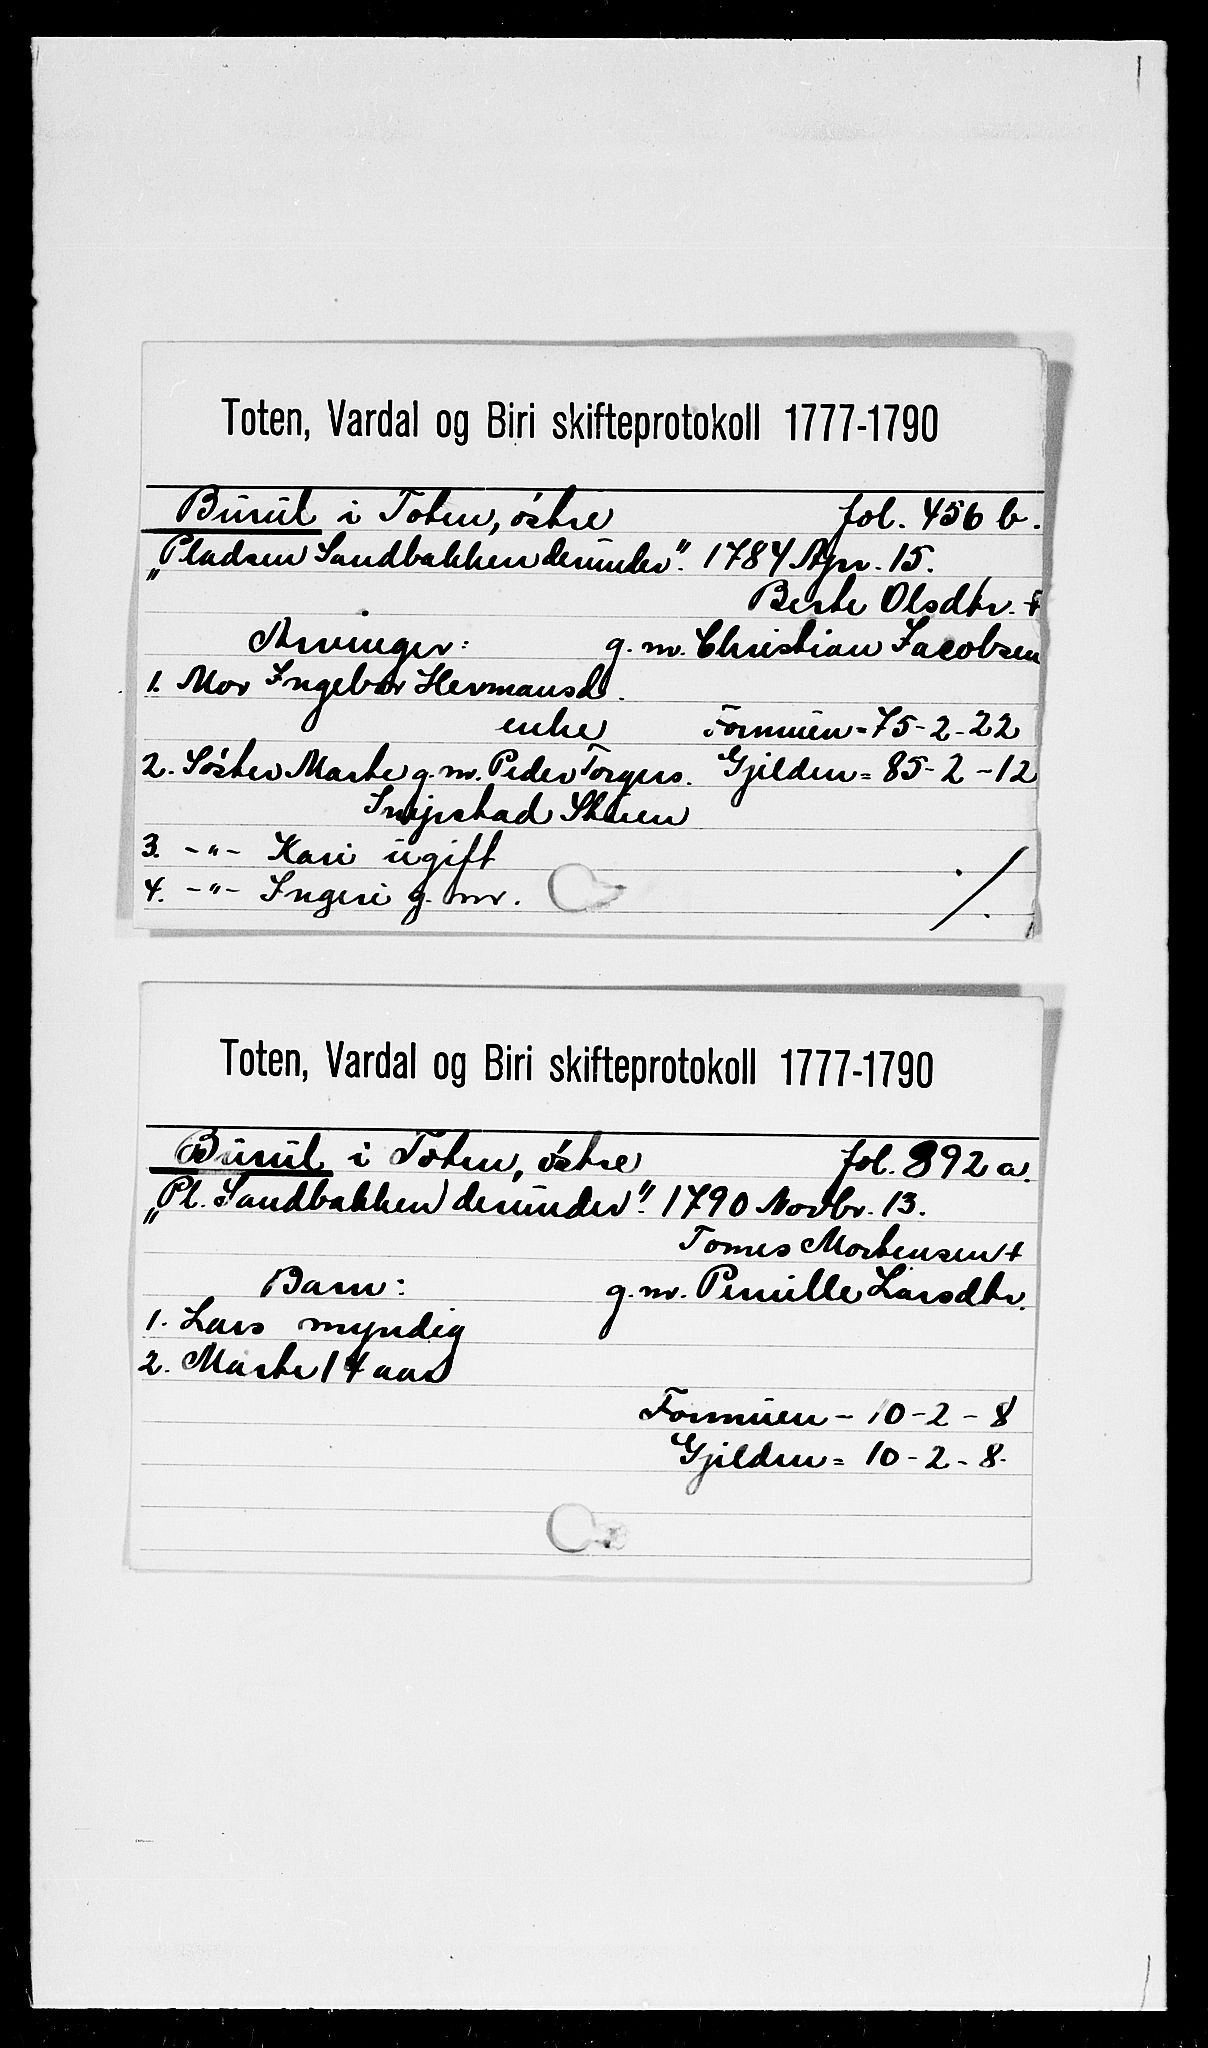 Toten, Vardal og Biri skifteprotokoll 1777-1790
Burul i Toten, østre fol. 456 b.
„Pladsen Sandbakken derunder". 1784 Apr. 15.
Berte Olsdtr. +
Arvinger: g. m. Christian Jacobsen
1. Mor Ingebor Hermansd.
enke Formuen = 75-2-22
2. Søster Marte g. m. Peder Torgers. Gjelden = 85-2-12
Snipstad Stuen
3. -"- Kari ugift
4. -"- Ingeri g. m.
./.
Toten, Vardal og Biri skifteprotokoll 1777-1790
Burul i Toten, østre fol. 892 a.
„Pl. Sandbakken derunder". 1790 Novbr. 13.
Tomes Mortensen +
Barn: g. m. Pernille Larsdtr.
1. Lars myndig
2. Marte 14 aar
Formuen - 10-2-8
Gjelden = 10-2-8.